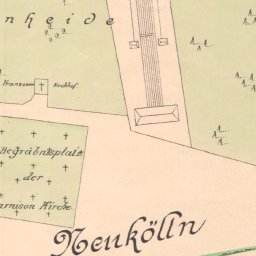 nheide
Französ. Kirchhof
Begräbnisplatz
der
arnison Kirche
Neukölln